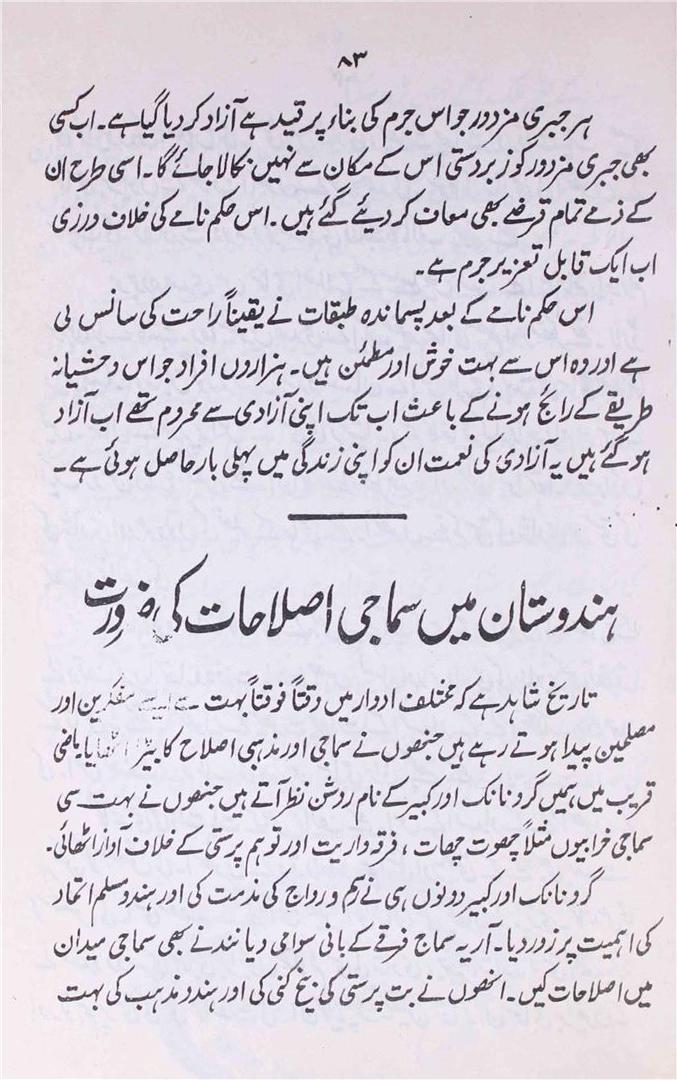 ۸۳
ہر جبری مزدور جو اس جرم کی بناء پر قید ہے آزاد کر دیا گیا ہے۔ اب کسی
بھی جبری مزدور کو زبردستی اس کے مکان سے نہیں نکالا جائے گا۔ اسی طرح ان
کے ذمے تمام قرضے بھی معاف کر دیئے گئے ہیں۔ اس حکم نامے کی خلاف ورزی
اب ایک قابل تعزیر جرم ہے۔
اس حکم نامے کے بعد پسماندہ طبقات نے یقیناً راحت کی سانس لی
ہے اور وہ اس سے بہت خوش اور مطمئن ہیں۔ ہزاروں افراد جو اس وحشیانہ
طریقے کے رائج ہونے کے باعث اب تک اپنی آزادی سے محروم تھے اب آزاد
ہو گئے ہیں یہ آزادی کی نعمت ان کو اپنی زندگی میں پہلی بار حاصل ہوئی ہے۔
ہندوستان میں سماجی اصلاحات کی ضرورت
تاریخ شاہد ہے کہ مختلف ادوار میں وقتاً فوقتاً بہت سے ایسے مفکرین اور
مصلحین پیدا ہوتے رہے ہیں جنھوں نے سماجی اور مذہبی اصلاح کا بیڑا اٹھایا ماضی
قریب میں ہمیں گرو نانک اور کبیر کے نام روشن نظر آتے ہیں جنھوں نے بہت سی
سماجی خرابیوں مثلاً چھوت چھات، فرقہ داریت اور توہم پرستی کے خلاف آواز اٹھائی۔
گرو نانک اور کبیر دونوں ہی نے رسم و رواج کی مذمت کی اور ہندو مسلم اتحاد
کی اہمیت پر زور دیا۔ آریہ سماج فرقے کے بانی سوامی دیانند نے بھی سماجی میدان
میں اصلاحات کیں۔ انھوں نے بت پرستی کی بیخ کنی کی اور ہندو مذہب کی بہت